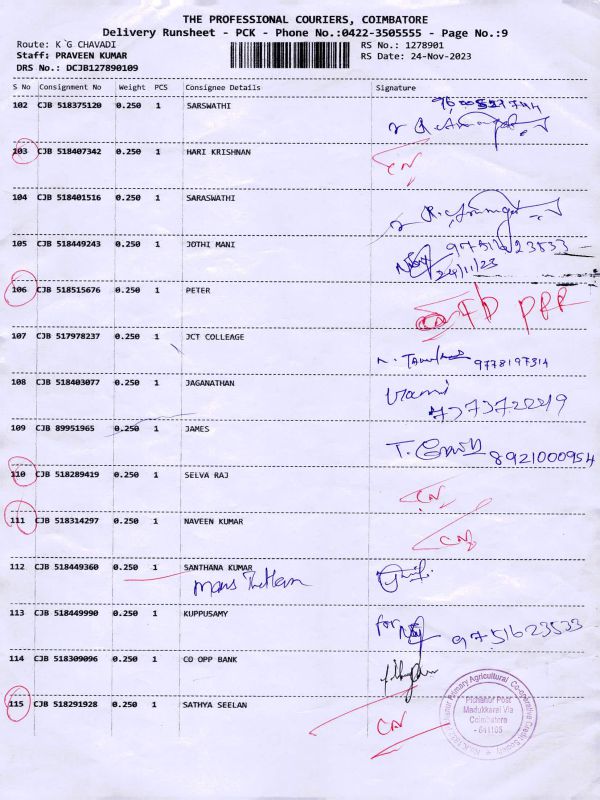 THE PROFESSIONAL COURIERS, COIMBATORE
Delivery Runsheet - PCK - Phone No.:0422-3505555 - Page No.:9
Route: K`G CHAVADI RS No.: 1278901
Staff: PRAVEEN KUMAR RS Date: 24-Nov-2023
DRS No.: DCJB127890109
S No Consignment No Weight PCS Consignee Details Signature
102 CJB 518375120 0.250 1 SARSWATHI
103 CJB 518407342 0.250 1 HARI KRISHNAN CN
104 CJB 518401516 0.250 1 SARASWATHI
105 CJB 518449243 0.250 1 JOTHI MANI 9751623533
24/11/23
106 CJB 518515676 0.250 1 PETER
107 CJB 517978237 0.250 1 JCT COLLEAGE 9778197314
108 CJB 518403077 0.250 1 JAGANATHAN
109 CJB 89951965 0.250 1 JAMES 8921000954
110 CJB 518289419 0.250 1 SELVA RAJ CN
111 CJB 518314297 0.250 1 NAVEEN KUMAR CN
112 CJB 518449360 0.250 1 SANTHANA KUMAR
113 CJB 518449990 0.250 1 KUPPUSAMY for 9751623533
114 CJB 518309096 0.250 1 CO OPP BANK
115 CJB 518291928 0.250 1 SATHYA SEELAN CN
Primary Agricultural Co-operative Credit Society
Pichanur Post
Madukkarai Via
Coimbatore
- 641105